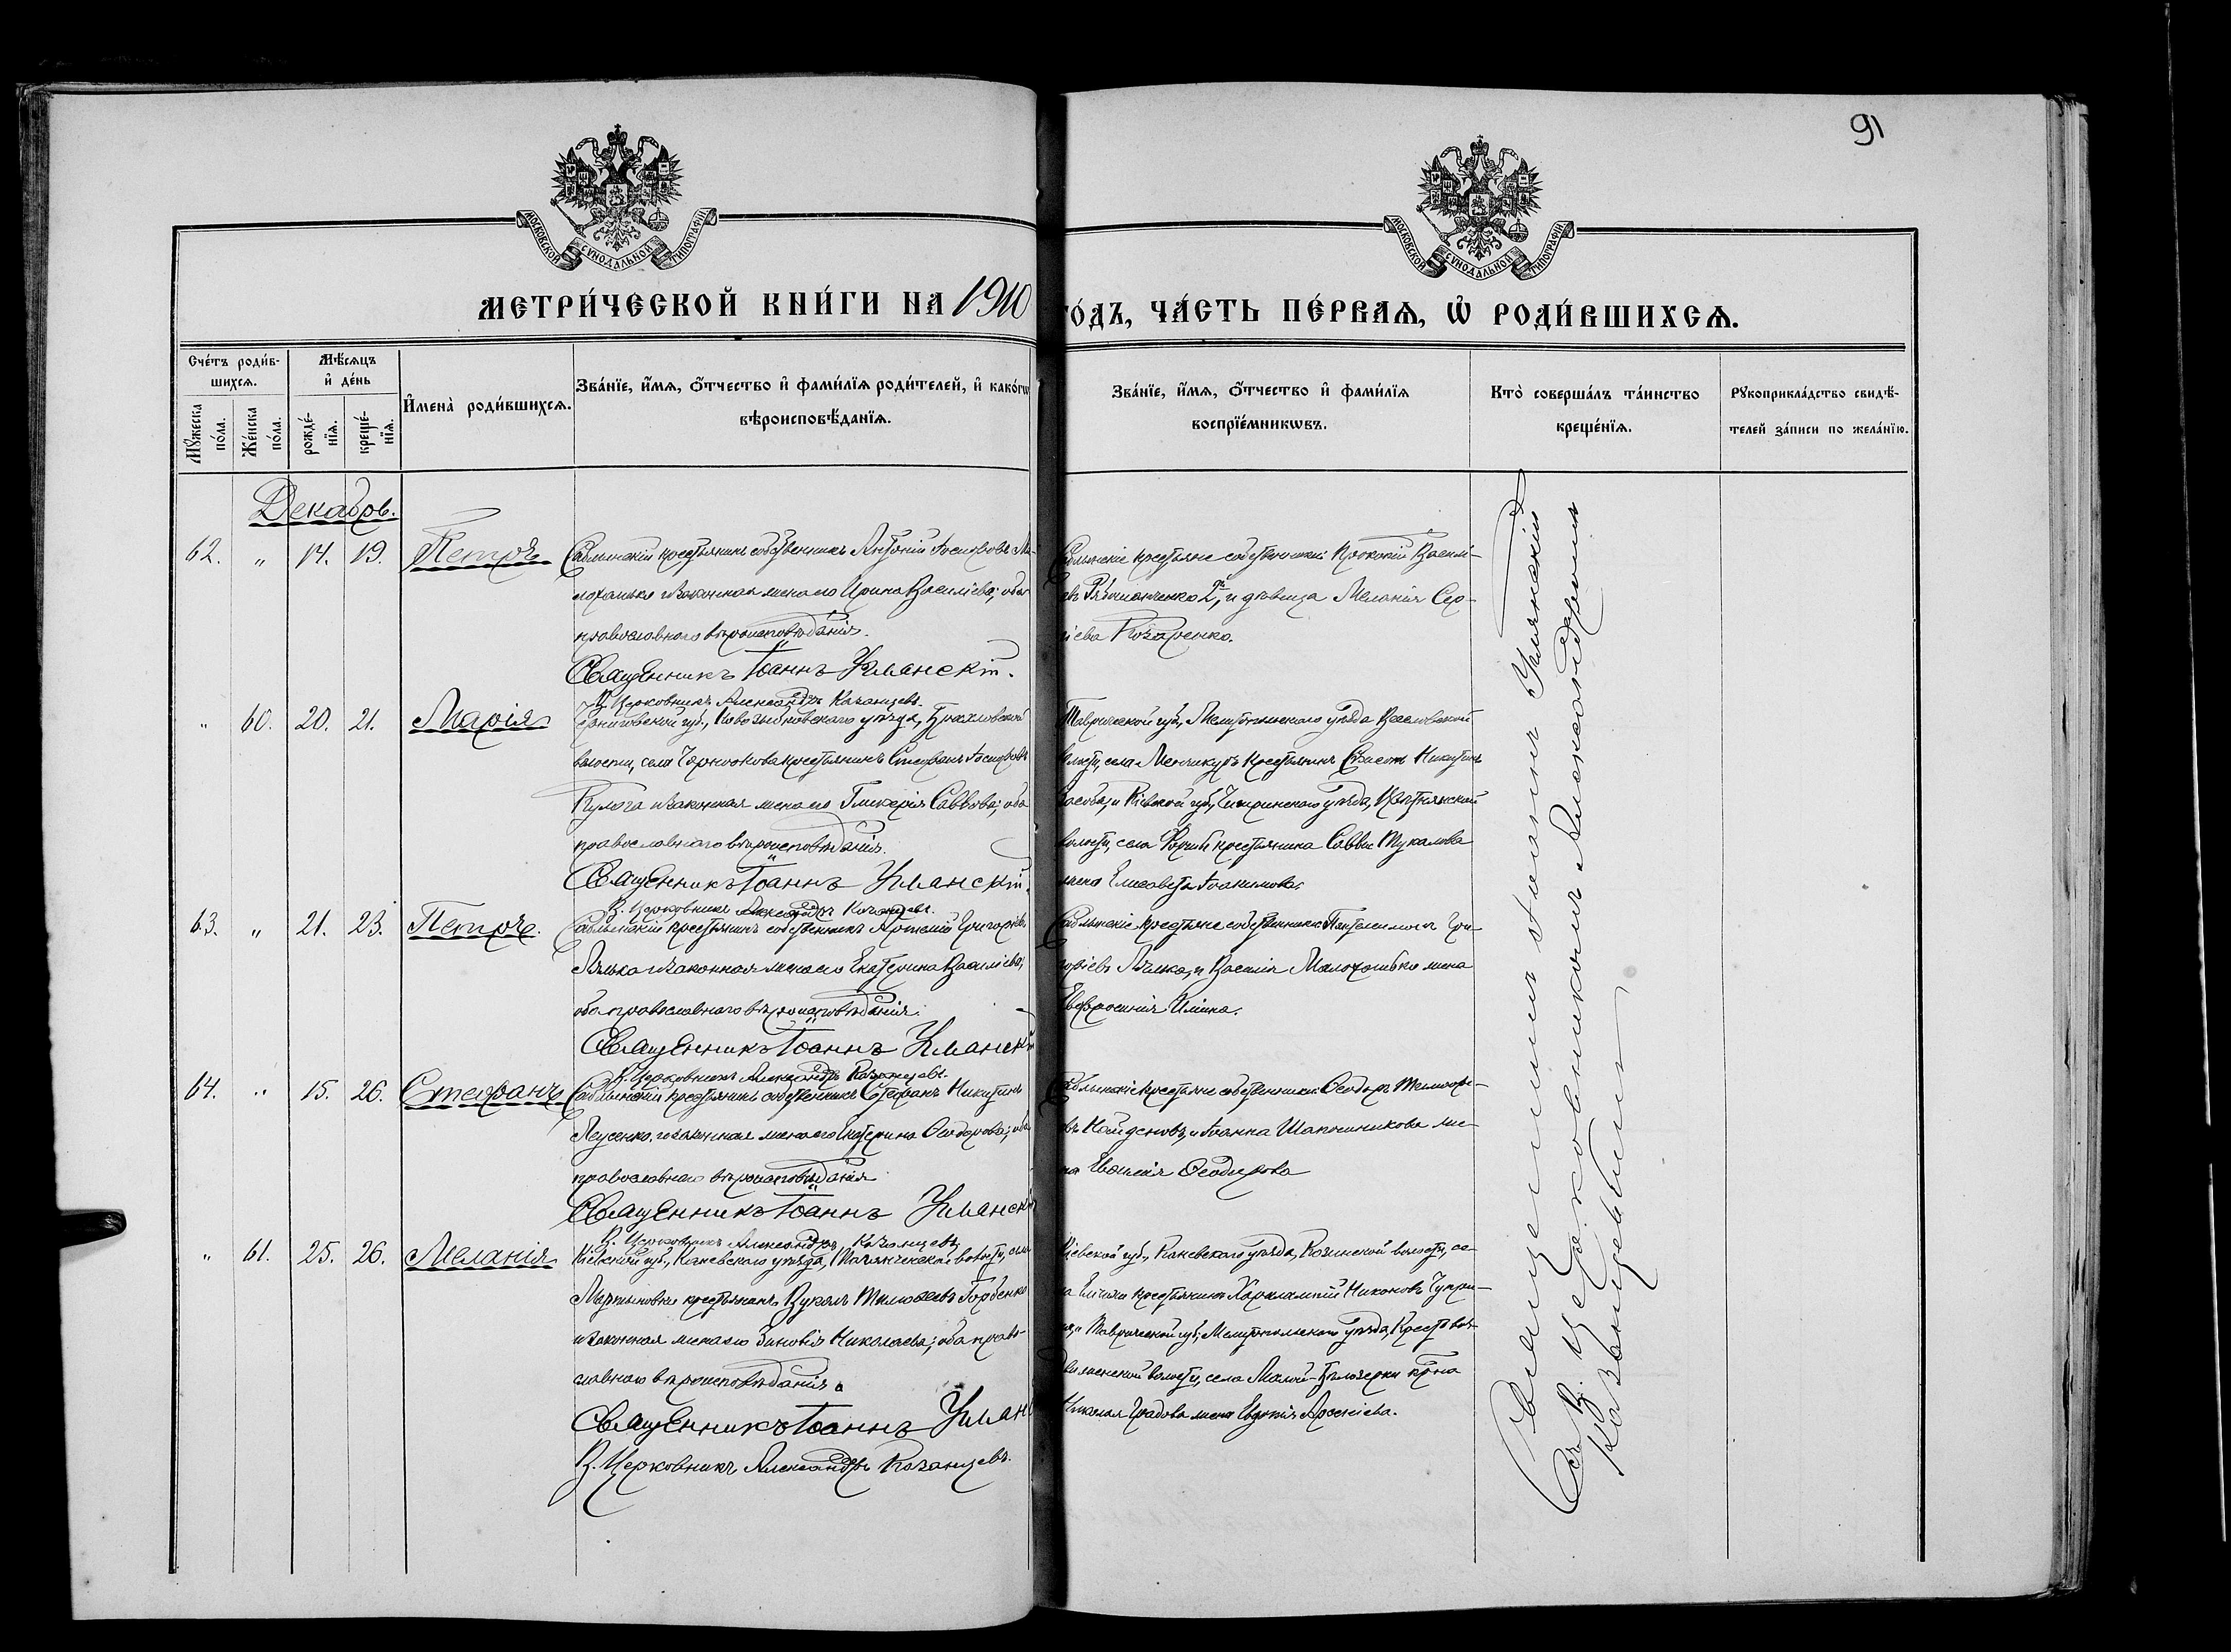 91
МОСКОВСКОЙ СѴНОДАЛЬНОЙ ТИПОГРАФІИ
МОСКОВСКОЙ СѴНОДАЛЬНОЙ ТИПОГРАФІИ
МЕТРИ́ЧЕСКОЙ КНИ́ГИ НА 1910
ГО́ДЪ, ЧА́СТЬ ПЕ́РВАѦ, Ѡ҆ РОДИ́ВШИХСѦ.
Сче́тъ роди́в-
шихсѧ.
Мꙋ́жеска по́ла.
Же́нска по́ла.
Мѣ́сѧцъ
и҆ де́нь
рожде́-
нїѧ.
креще́-
нїѧ.
И҆мена̀ роди́вшихсѧ.
Зва́нїе, и҆́мѧ, ѻ҆́тчество и҆ фами́лїѧ роди́телей, и҆ како́гѡ
вѣроисповѣ́данїѧ.
Зва́нїе, и҆́мѧ, ѻ҆́тчество и҆ фами́лїѧ
воспрїе́мникѡвъ.
Кто̀ соверша́лъ та́инство
креще́нїѧ.
Рꙋкоприкла́дство свидѣ́-
телей за́писи по жела́нїю.
Декабрь.
62. " 14. 19. Петръ
крестьянинъ собственникъ Антоній Іосифовъ Ма-
лохатько и законная жена его Ирина Василіева; оба
православнаго вѣроисповѣданія.
Священникъ Іоаннъ Уманскій.
В. Церковникъ Александръ Казанцевъ.
крестьяне собственники: Прокопій Васили-
евъ 2й, и дѣвица Меланія Сер-
гіева
" 60. 20. 21. Марія
Черниговской губ., Новозыбковскаго уѣзда,
волости, села крестьянинъ Стефанъ Іосифовъ
Кулага и законная жена его Гликерія Саввова; оба
православнаго вѣроисповѣданія.
Священникъ Іоаннъ Уманскій.
В. Церковникъ Александръ Казанцевъ.
Таврической губ., Мелитопольскаго уѣзда Веселовской
волости, села Менчикуръ крестьянинъ Симеонъ Никитинъ
и Кіевской губ., Чигиринскаго уѣзда,
волости, села крестьянина Саввы Тукалова
жена Елисавета Іоакимова.
63. " 21. 23. Петръ.
крестьянинъ собственникъ Артемій Григорьевъ
Лялька и законная жена его Екатерина Василіева;
оба православнаго вѣроисповѣданія.
Священникъ Іоаннъ Уманскій
В. Церковникъ Александръ Казанцевъ.
крестьяне собственники: Пантелеимонъ Гри-
горіевъ Лялька, и Василія Малохатько жена
Евфросинія
64. " 15. 26. Стефанъ
крестьянинъ собственникъ Стефанъ Никитинъ
и законная жена его Екатерина Ѳеодорова; оба
православнаго вѣроисповѣданія
Священникъ Іоаннъ Уманскій
В. Церковникъ Александръ Казанцевъ
крестьяне собственники: Ѳеодоръ Тимоѳе-
евъ Найденовъ, и Іоанна Шапошникова же-
на Ѳеодорова
" 61. 25. 26. Меланія
Кіевской губ., Каневскаго уѣзда, волости, села
Мартыновки крестьянинъ Вуколъ Тимоѳеевъ Горбенко
и законная жена его Зиновія Николаева; оба право-
славнаго вѣроисповѣданія.
Священникъ Іоаннъ Уман
В. Церковникъ Александръ Казанцевъ.
Кіевской губ., Каневскаго уѣзда, Козинской волости, се-
ла крестьянинъ Харлампій Никоновъ Чупри-
на, и Таврической губ., Мелитопольскаго уѣзда, Кресто воз-
движенской волости, села Малой-Бѣлозерки кр-на
Николая Градова жена Евдокія Арсеніева.
Священникъ Іоаннъ Уманскій
съ В. Церковникомъ Александромъ
Казанцевымъ